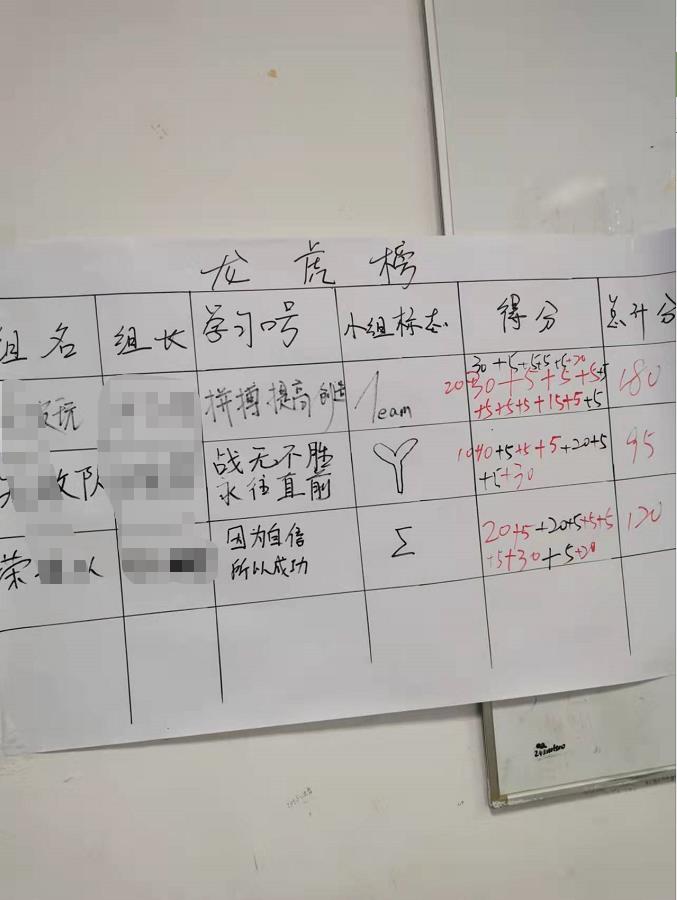 龙虎榜
组名 组长 学习口号 小组标志 得分 总计分
玩 拼搏提高创造 Team 30+5+5+5+5+20
20+30+5+5+5+5 180
+5+5+5+15+5+5
战无不胜 Y +5+5+5+20+5 95
攻队 永往直前 +5+30
荣 队 因为自信 Σ 20+5+20+5+5+5 120
所以成功 +5+30+5+20